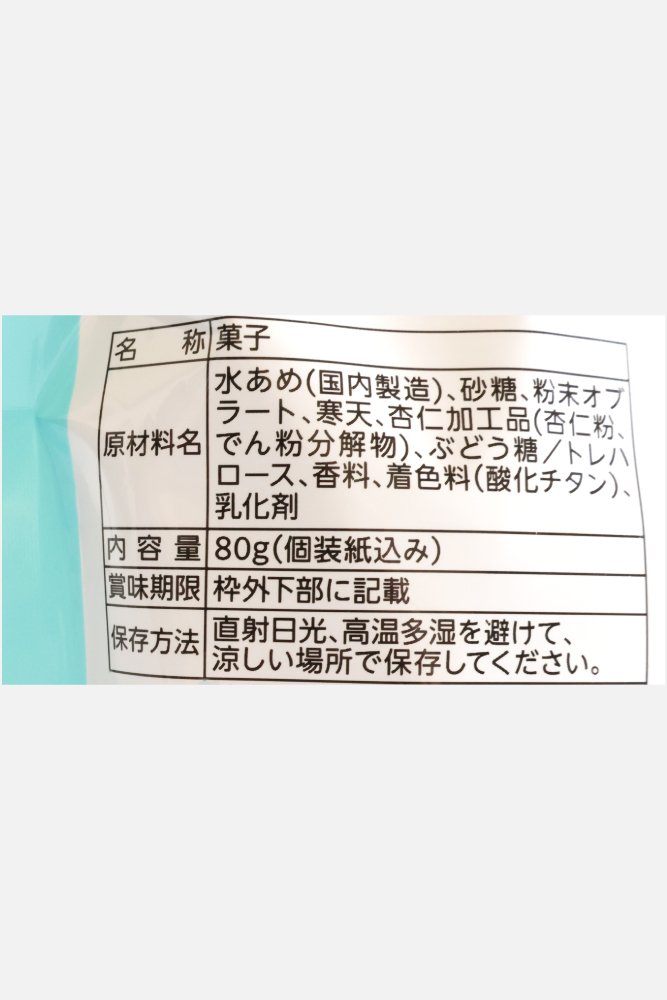 名称 菓子
原材料名 水あめ(国内製造)、砂糖、粉末オブ
ラート、寒天、杏仁加工品(杏仁粉、
でん粉分解物)、ぶどう糖／トレハ
ロース、香料、着色料(酸化チタン)、
乳化剤
内容量 80g(個装紙込み)
賞味期限 枠外下部に記載
保存方法 直射日光、高温多湿を避けて、
涼しい場所で保存してください。